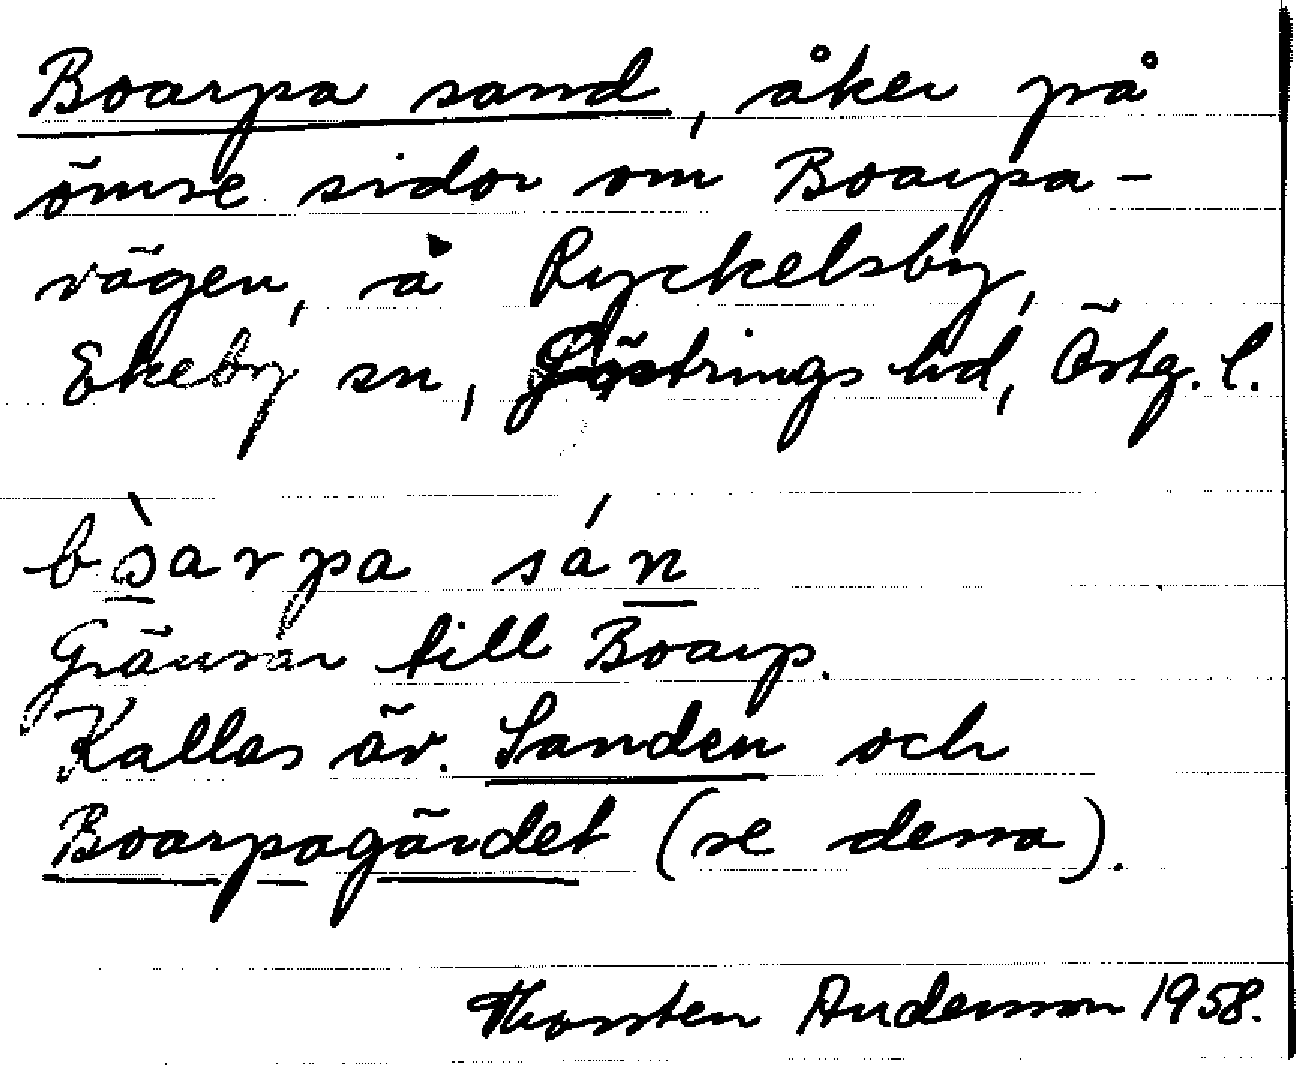 Boarpa sand, åker på
ömse sidor om Boarpa-
vägen, å Ryckelsby,
Ekeby sn, Göstrings hd, Östg. l.
bɔ̀arpa sán
Gränsar till Boarp.
Kallas äv. Sanden och
Boarpagärdet (se dessa).
Thorsten Andersson 1958.